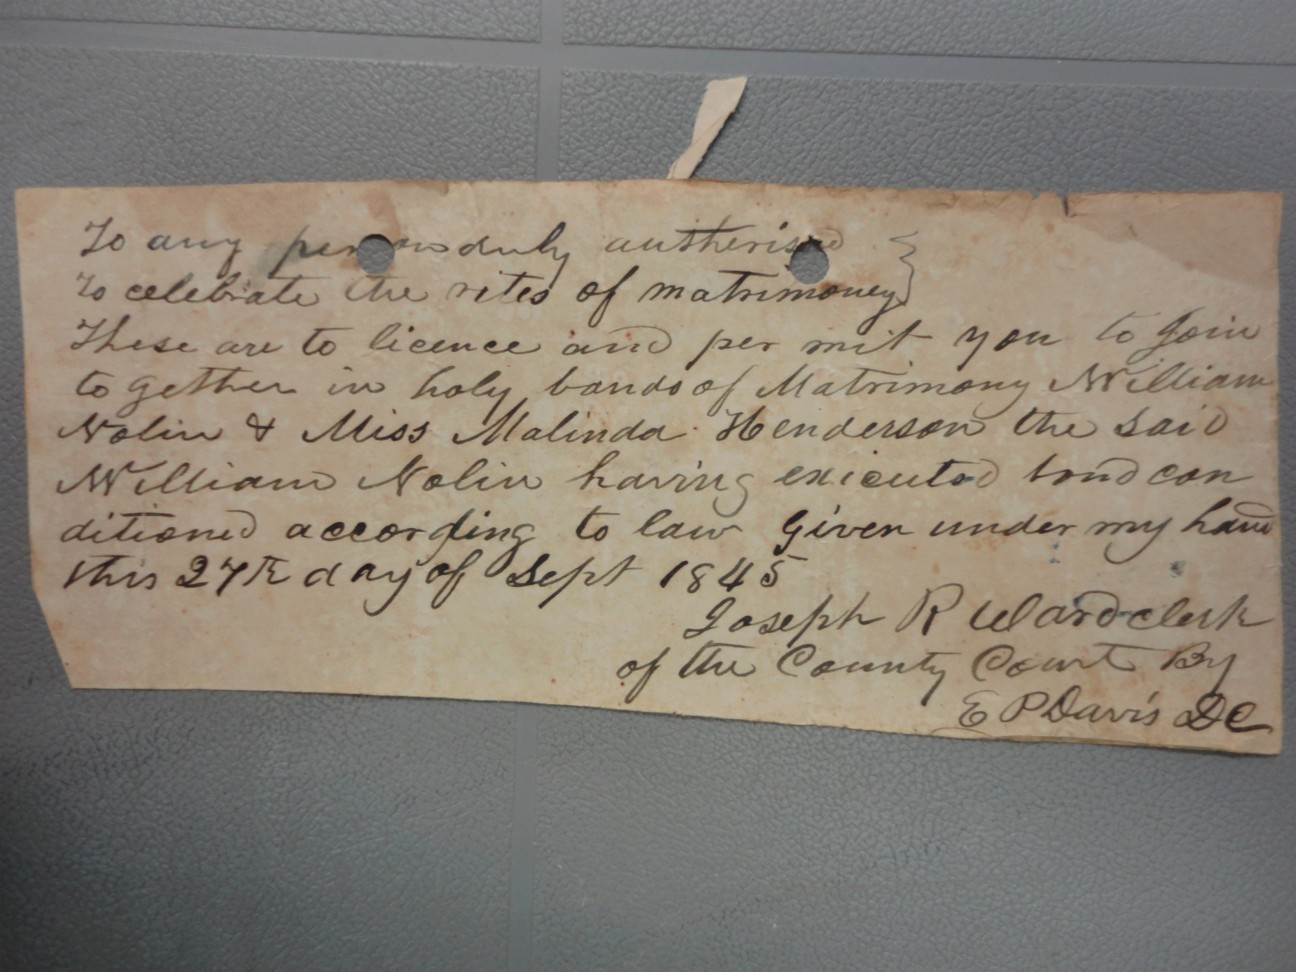 To any person duly autherised
To celebrate the rites of matrimoney
These are to licence and per mit you to Join
to gether in holy bands of Matrimony William
Nolin & Miss Malinda Henderson the said
William Nolin having exicuted bond con
ditioned according to law Given under my hand
this 27th day of Sept 1845
Joseph R Ward clerk
of the County Court By
E P Davis DC